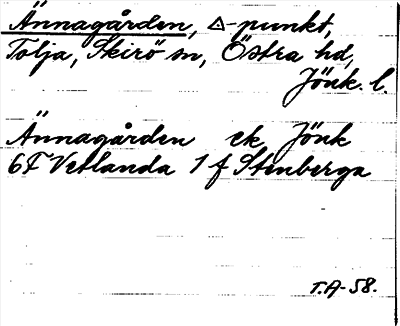 Ännagården, △-punkt,
Tolja, Skirö sn, Östra hd,
Jönk. l.
Ännagården ek Jönk
6F Vetlanda 1 f Stenberga
T.A-58.